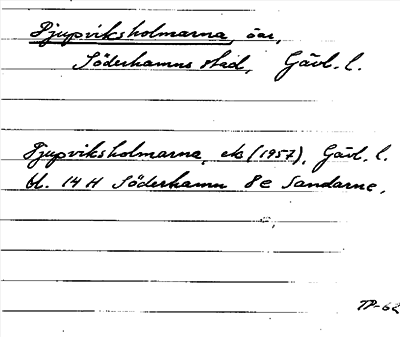 Djupviksholmarna, öar,
Söderhamns stad, Gävl. l.
Djupviksholmarna, ek (1957), Gävl. l.
bl. 14 H Söderhamn 8 e Sandarne.
TP-62